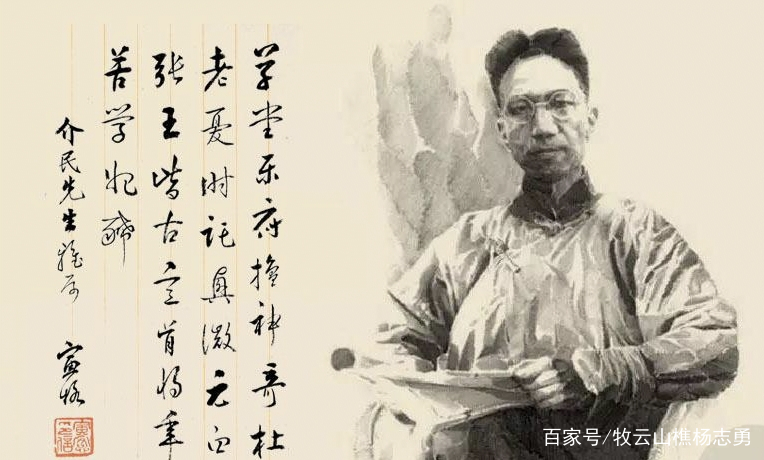 草堂乐府擅神奇杜
老憂时託興微元白
張王皆古意肯将辛
苦学妃豨
介民先生雅属 寅恪
百家号/牧云山樵杨志勇